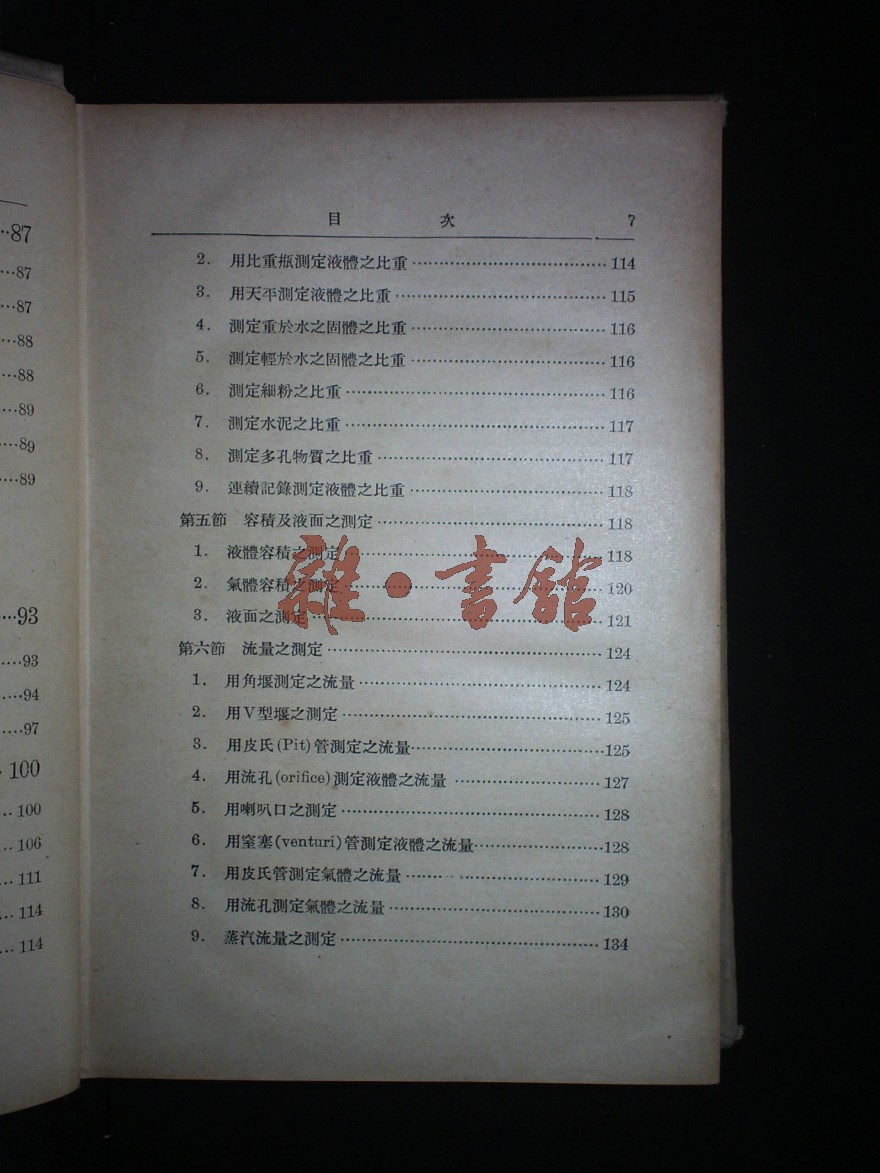 …87
…87
…87
…88
…88
…89
…89
…89
…93
…93
…94
…97
100
…100
…106
…111
…114
…114
目 次 7
2. 用比重瓶測定液體之比重…114
3. 用天平測定液體之比重…115
4. 測定重於水之固體之比重…116
5. 測定輕於水之固體之比重…116
6. 測定細粉之比重…116
7. 測定水泥之比重…117
8. 測定多孔物質之比重…117
9. 連續記錄測定液體之比重…118
第五節 容積及液面之測定…118
1. 液體容積之測定…118
2. 氣體容積之測定…120
3. 液面之測定…121
第六節 流量之測定…124
1. 用角堰測定之流量…124
2. 用V型堰之測定…125
3. 用皮氏(Pit)管測定之流量…125
4. 用流孔(orifice)測定液體之流量…127
5. 用喇叭口之測定…128
6. 用窒塞(venturi)管測定液體之流量…128
7. 用皮氏管測定氣體之流量…129
8. 用流孔測定氣體之流量…130
9. 蒸汽流量之測定…134
雜·書館